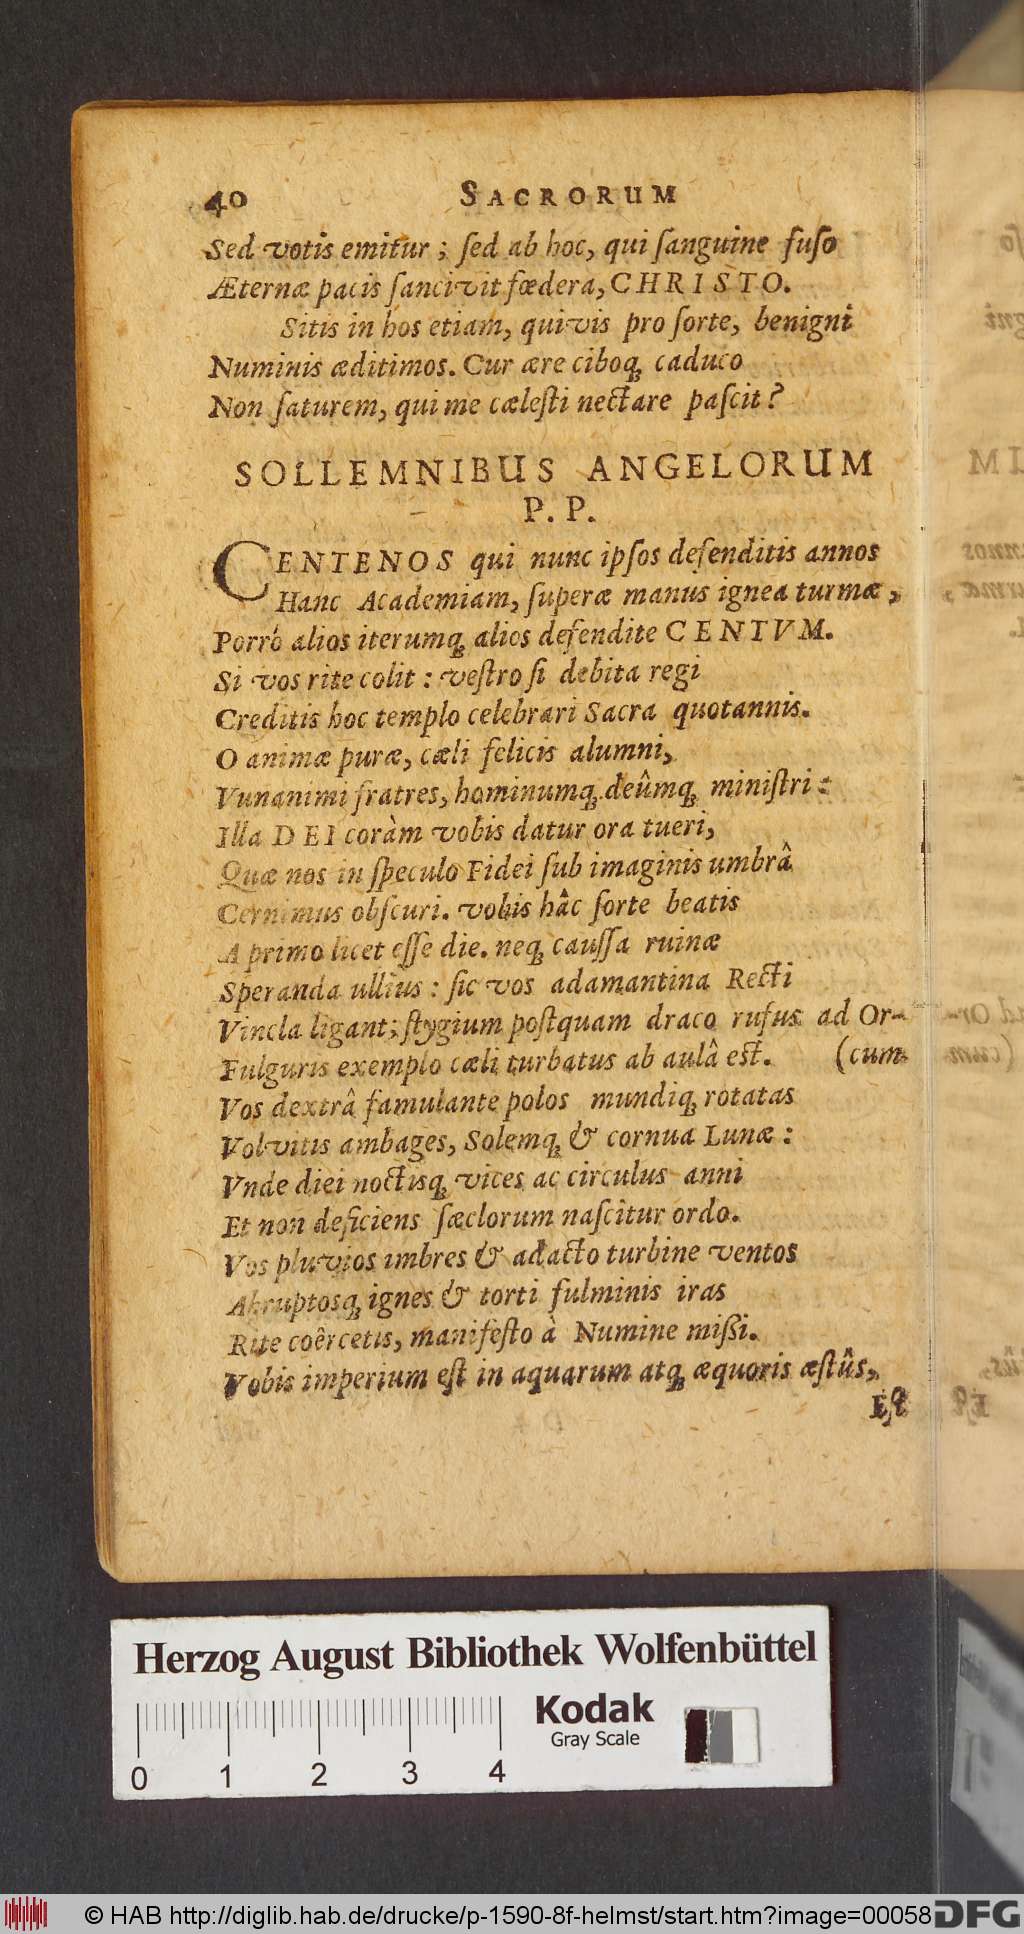 40 SACRORUM
Sed votis emitur; ſed ab hoc, qui ſanguine fuſo
Æternæ pacis ſancivit fœdera, CHRISTO.
Sitis in hos etiam, quivis pro ſorte, benigni
Numinis æditimos. Cur ære ciboq; caduco
Non ſaturem, qui me cæleſti nectare paſcit?
SOLLEMNIBUS ANGELORUM
P. P.
CENTENOS qui nunc ipſos defenditis annos
Hanc Academiam, ſuperæ manus ignea turmæ,
Porrò alios iterumq; alios defendite CENTVM.
Si vos rite colit: veſtro ſi debita regi
Creditis hoc templo celebrari Sacra quotannis.
O animæ puræ, cæli felicis alumni,
Vunanimi fratres, hominumq; deûmq; miniſtri:
Illa DEI coràm vobis datur ora tueri,
Quæ nos in ſpeculo Fidei ſub imaginis umbrâ
Cernimus obſcuri. vobis hâc ſorte beatis
A primo licet eſſe die. neq; cauſſa ruinæ
Speranda ullius: ſic vos adamantina Recti
Vincla ligant; ſtygium poſtquam draco rufus ad Or-
Fulguris exemplo cæli turbatus ab aulâ eſt. (cum
Vos dextrâ famulante polos mundiq; rotatas
Volvitis ambages, Solemq; & cornua Lunæ:
Vnde diei noctisq; vices ac circulus anni
Et non deficiens ſæclorum naſcitur ordo.
Vos pluvios imbres & adacto turbine ventos
Abruptosq; ignes & torti fulminis iras
Rite coêrcetis, manifeſto à Numine miſſi.
Vobis imperium eſt in aquarum atq; æquoris æſtûs,
Eſt
Herzog August Bibliothek Wolfenbüttel
Kodak
Gray Scale
0 1 2 3 4
© HAB http://diglib.hab.de/drucke/p-1590-8f-helmst/start.htm?image=00058
DFG